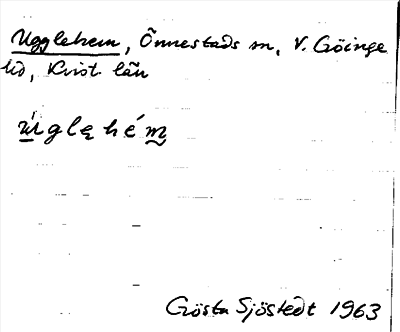 Ugglehem, Önnestads sn, V. Göinge
hd, Krist. län
úglęhém̰
Gösta Sjöstedt 1963